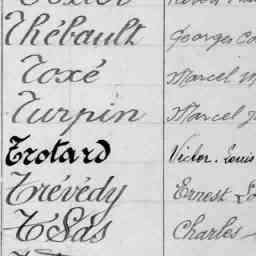 Thébault Georges
Toxé Marcel
Turpin Marcel
Trotard Victor. Louis
Trévédy Ernest
Charles